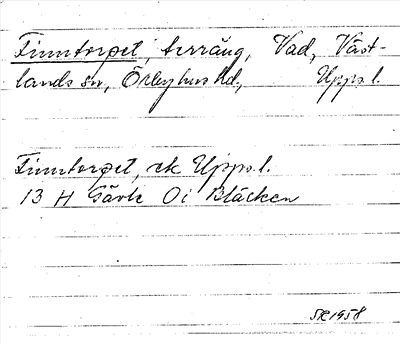 Finntorpet, terräng, Vad, Väst-
lands sn, Örbyhus hd, Upps. l.
Finntorpet, ek Upps. l.
13 H Gävle Oi Bläcken
SR 1958